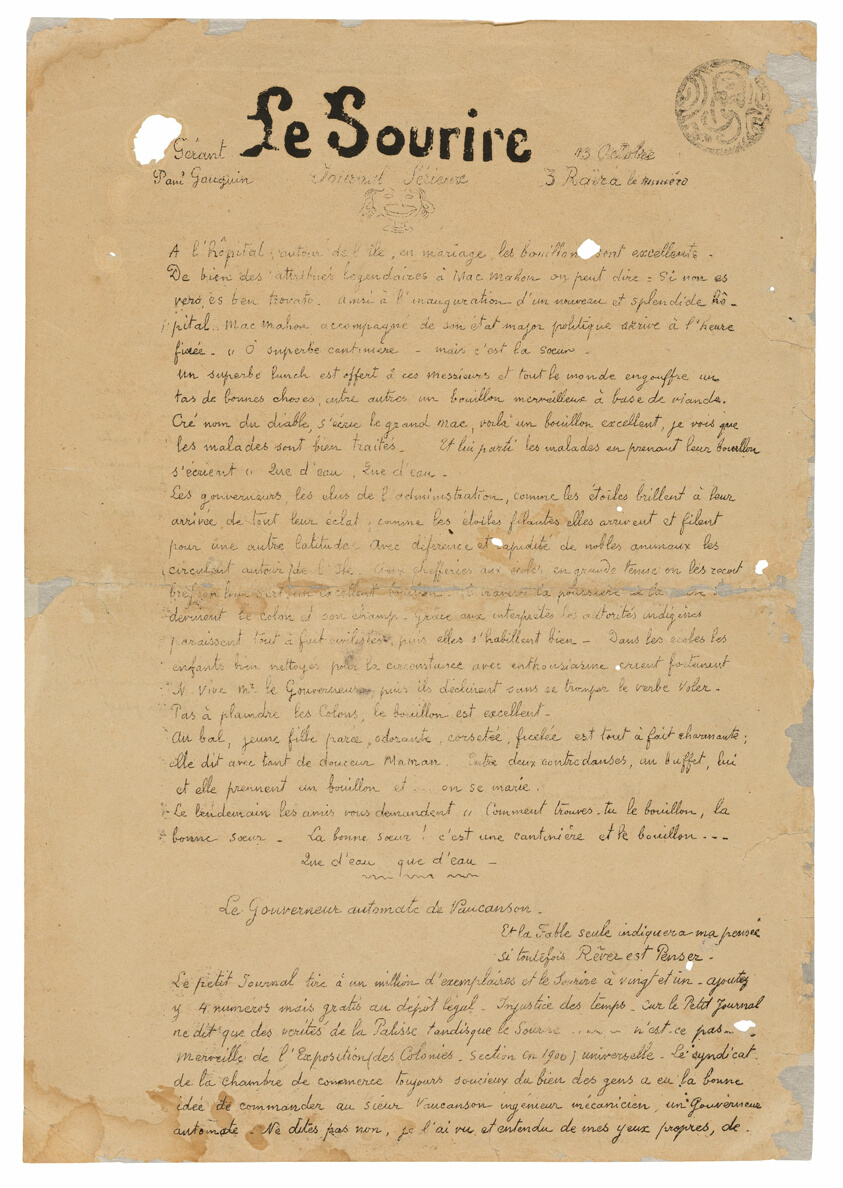 Le Sourire
Gérant
13 Octobre
Paul Gauguin
Journal Sérieux
3 Raïra le numéro
A l'hôpital, autour de l'île, en mariage, les bouillons sont excellents.
De bien des attribués légendaires à Mac Mahon on peut dire : Si non es
vero, es ben trovato. Ainsi à l'inauguration d'un nouveau et splendide hô-
pital. Mac Mahon accompagné de son état major politique à l'heure
fixée. " O superbe cantinière - mais c'est la Sœur -
Un superbe lunch est offert à ces messieurs et tout le monde engouffre un
tas de bonnes choses, entre autres un bouillon merveilleux à base de viande.
Cré nom du diable, s'écrie le grand Mac, voilà un bouillon excellent, je vois que
les malades sont bien traités. Et lui parti les malades en prenant leur bouillon
s'écrient " Que d'eau, Que d'eau -
Les gouverneurs, les élus de l'administration, comme les étoiles brillent à leur
arrivée, de tout leur éclat, comme les étoiles filantes elles arrivent et filent
pour une autre latitude. Avec déférence et rapidité de nobles animaux les
circulent autour de l'Ile. Aux chefferies aux écoles, en grande tenue on les reçoit
bref on leur sert un excellent bouillon. A travers la poussière de la
devinent le colon et son champ. Grâce aux interprètes les autorités indigènes
paraissent tout à fait civilisées, puis elles s'habillent bien - Dans les écoles les
enfants bien nettoyés pour la circonstance avec enthousiasme crient fortement
Vive Mr le Gouverneur, puis ils déclinent sans se tromper le verbe Voler.
Pas à plaindre les Colons, le bouillon est excellent -
Au bal, jeune fille parée, odorante, corsetée, ficelée est tout à fait charmante ;
elle dit avec tant de douceur Maman. Entre deux contredanses, au buffet, lui
et elle prennent un bouillon et ... on se marie.
Le lendemain les amis vous demandent " Comment trouves-tu le bouillon, la
bonne sœur - La bonne sœur ! c'est une cantinière et le bouillon ---
Que d'eau que d'eau -
Le Gouverneur automate de Vaucanson -
Et la Fable seule indiquera ma pensée
Si toutefois Rêver est Penser -
Le petit Journal tire à un million d'exemplaires et le Sourire à vingt et un - ajoutez
y 4 numeros mais gratis au dépôt légal - Injustice des temps - Car le Petit Journal
ne dit que des vérités de la Palisse tandisque le Sourire ..... n'est-ce pas -
Merveille de l'Exposition (des Colonies - Section en 1900) universelle - Le syndicat
de la chambre de commerce toujours soucieux du bien des gens a eu la bonne
idée de commander au sieur Vaucanson ingénieur mécanicien, un Gouverneur
automate. Ne dites pas non, je l'ai vu et entendu de mes yeux propres, de-